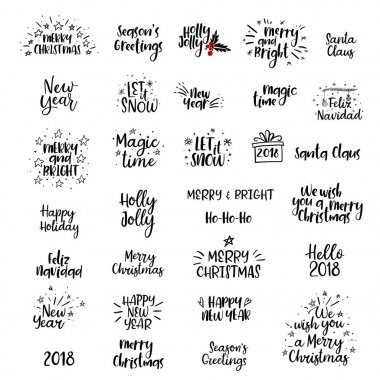 MERRY
CHRISTMAS
Season's
Greetings
Holly
Jolly
merry
and
Bright
Santa
Claus
New
Year
LET
it
SNOW
New
Year
magic
time
Feliz
Navidad
MERRY
and
BRIGHT
Magic
time
LET
it
SNOW
2018
Santa Claus
Happy
Holiday
Holly
Jolly
MERRY & BRIGHT
Ho-Ho-Ho
We wish
you a merry
Christmas
Feliz
Navidad
Merry
Christmas
MERRY
CHRISTMAS
Hello
2018
New
Year
HAPPY
NEW
YEAR
HAPPY
NEW YEAR
We
wish you
a Merry
Christmas
2018
merry
Christmas
Season's
Greetings